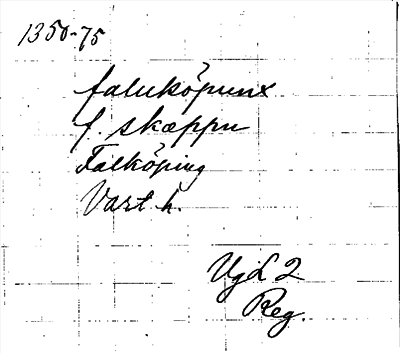 1350-75
faluköpunx
f skæppu
Falköping
Vart h.
VgL 2
Reg.